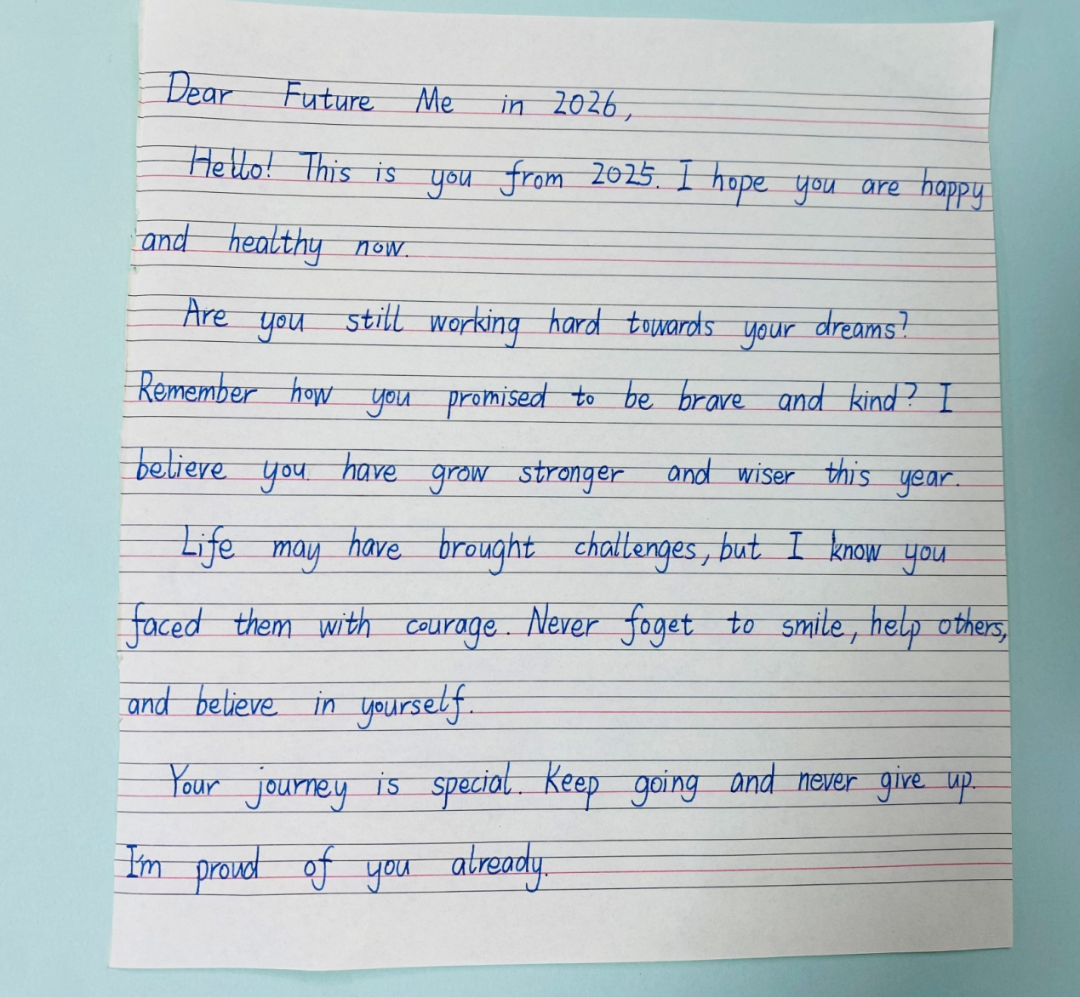 Dear Future Me in 2026,
Hello! This is you from 2025. I hope you are happy
and healthy now.
Are you still working hard towards your dreams?
Remember how you promised to be brave and kind? I
believe you have grow stronger and wiser this year.
Life may have brought challenges, but I know you
faced them with courage. Never foget to smile, help others,
and believe in yourself.
Your journey is special. Keep going and never give up.
I'm proud of you already.